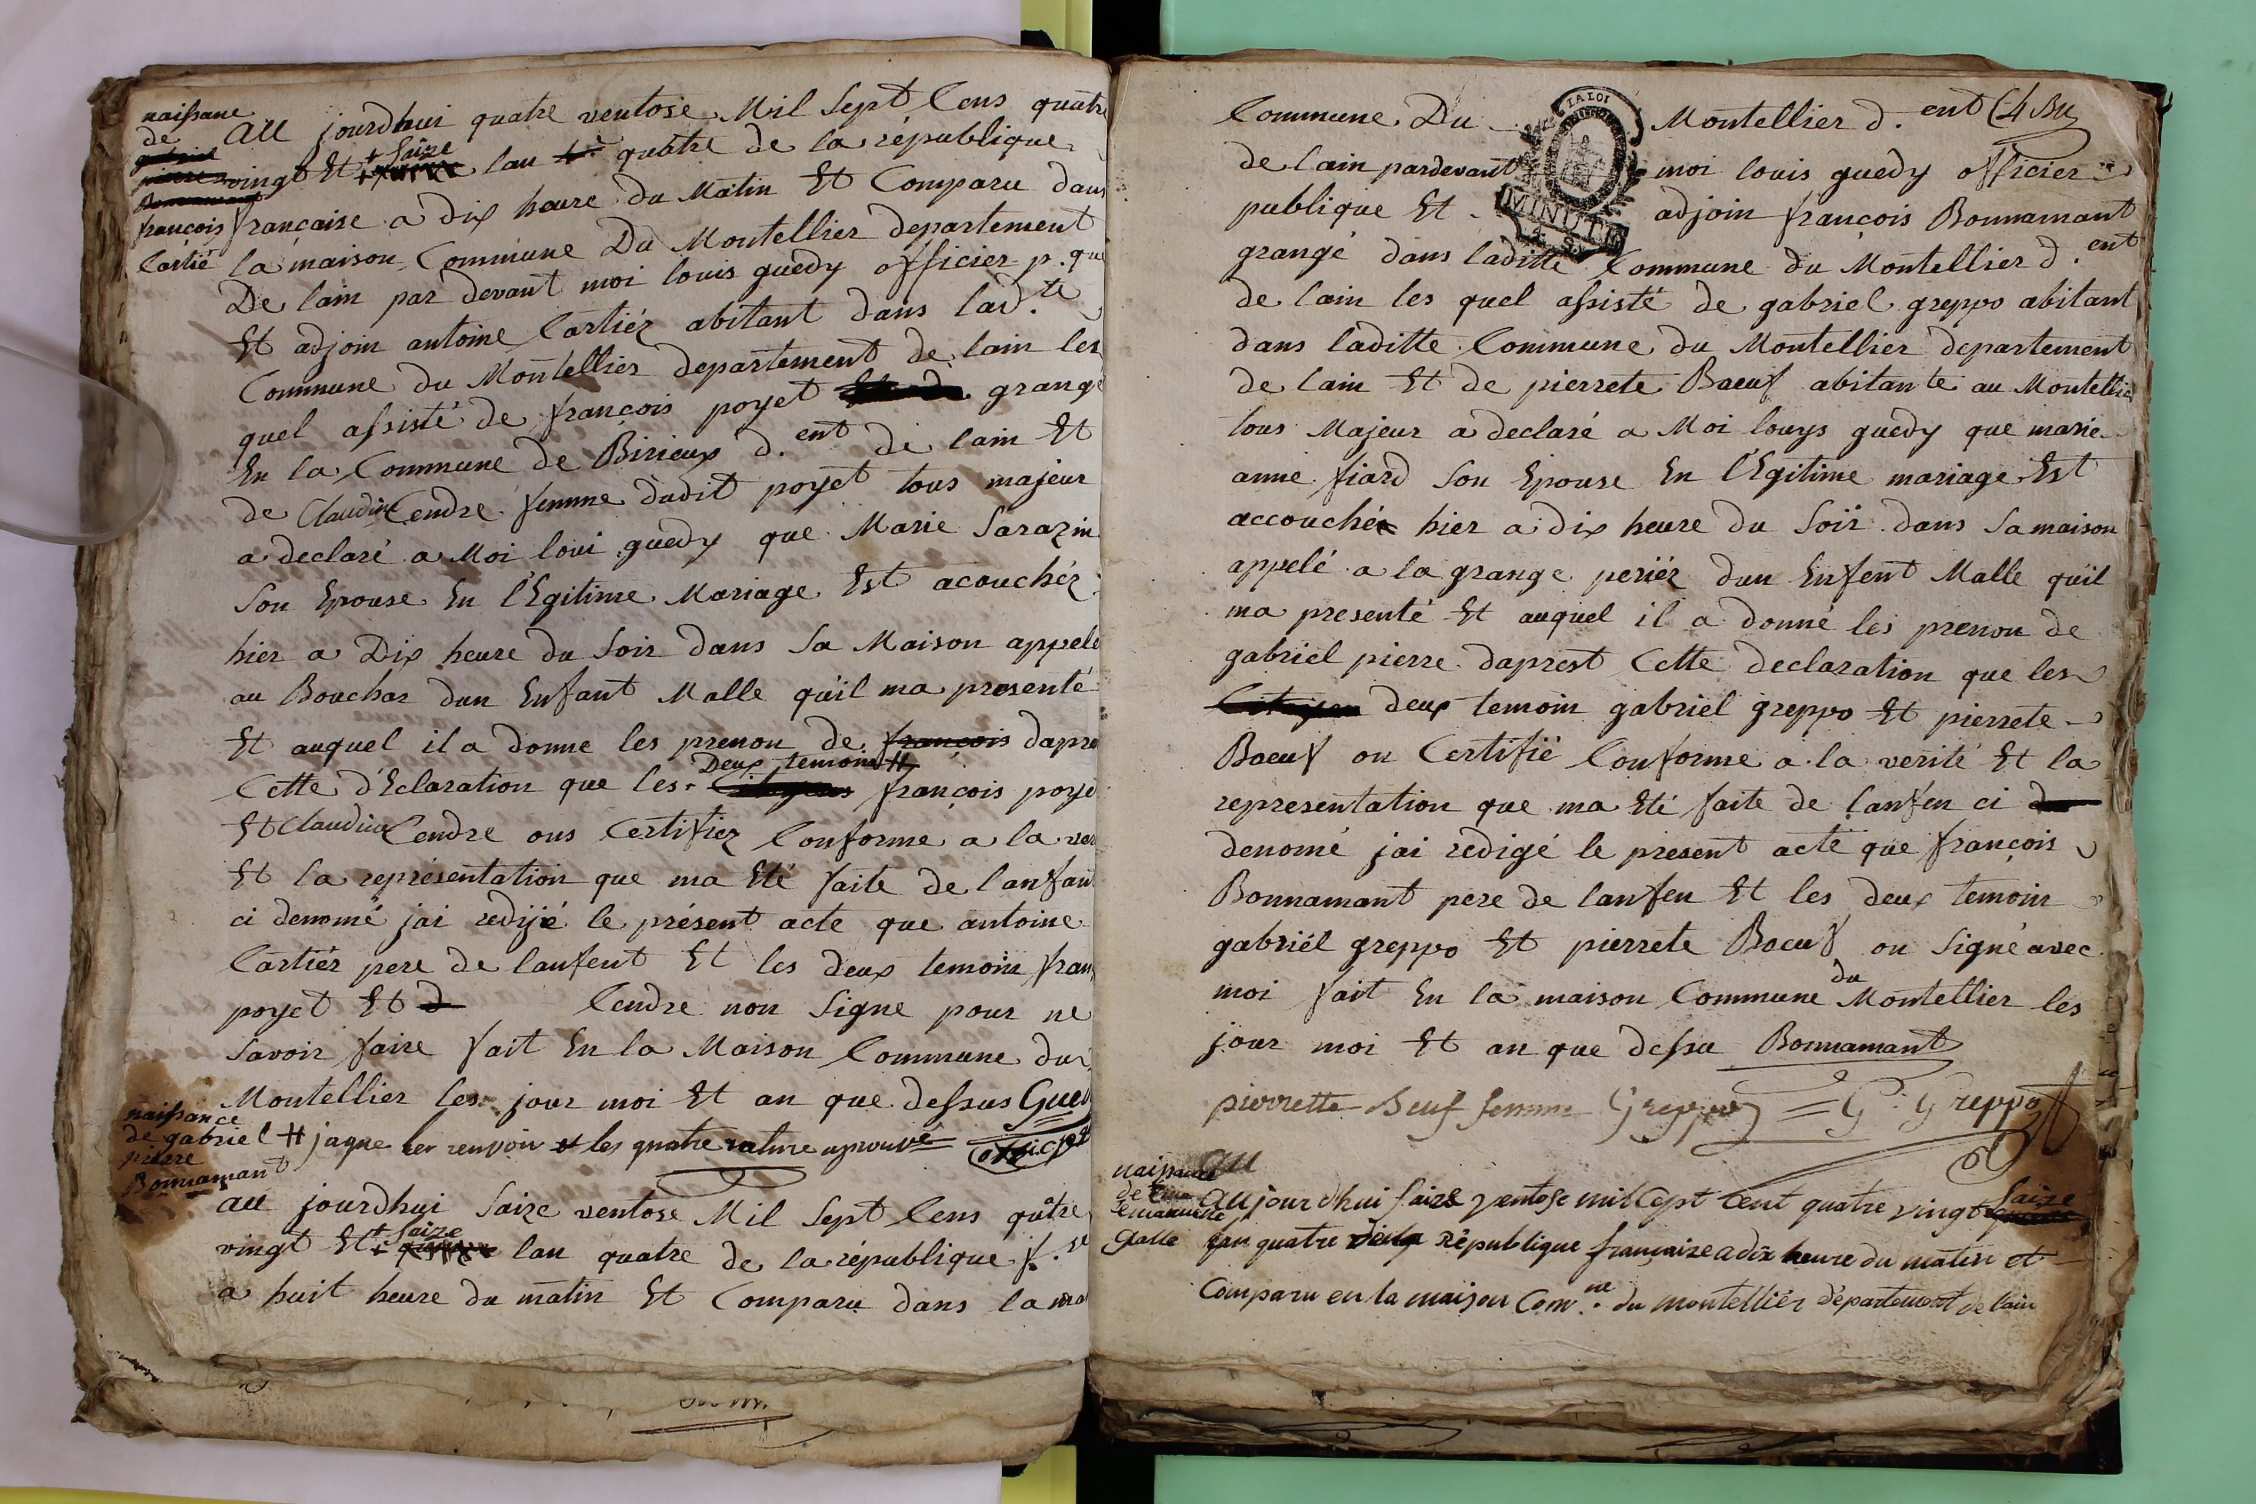 naissane
de
gabriel
pierre
Bonnamant
françois
Cartié
au jourdhui quatre ventose Mil Sept Cens quatre
vingt Et + Saize lan quatre de la république
française a dix heure du Matin Et Comparu dans
la maison Commune Du Montellier departement
De lain par devant moi louis guedy officier p.que
Et adjoin antoine Cartiér abitant dans lad.te
Commune du Montellier departement de lain les
quel assisté de françois poyet grangé
En la Commune de Birieux d.ent de lain Et
de Claudine Cendre femme dudit poyet tous majeur
a declaré a Moi loui guedy que Marie Sarazin
Son Epouse En l'Egitime Mariage Est acouchéz
hier a Dix heure du Soir dans Sa Maison appelé
au Bouchas dun Enfant Malle qu'il ma presenté
Et auquel il a donne les prenon de françois dapre
Cette d'Eclaration que les Deux temoins # Citoyens françois poye
Et Claudine Cendre ons Certifiez Conforme a la ver
Et la représentation que ma Eté faite de lanfant
ci denomé jai redijé le présent acte que antoine
Cartiér pere de lanfent Et les deux temoin fran
poyet Et d Cendre non Signe pour ne
Savoir faire fait En la Maison Commune du
Montellier les jour moi Et an que dessus Gued
officier
# jaque les renvoir et les quatre rature aprouvé
naissance
de gabriel
pierre
Bonnamant
au jourdhui Saize ventose Mil Sept Cens quâtre
vingt Et + Saize lan quatre de la république f.se
a huit heure du matin Et Comparu dans la mai
Commune Du Montellier d.ent
de lain pardevant moi louis guedy officier
publique Et adjoin françois Bonnamant
grangé dans laditte Commune du Montellier d.ent
de lain les quel assisté de gabriel greppo abitant
dans laditte Commune du Montellier departement
de lain Et de pierrete Baeuf abitante au Montellier
tous Majeur a declaré a Moi louys guedy que marie
anne fiard Son Epouse En l'Egitime mariage Est
accouchée hier a dix heure du Soir dans Sa maison
appelé a la grange periéz dun Enfent Malle qu'il
ma presenté Et auquel il a donné les prenon de
gabriel pierre daprest Cette declaration que les
Citoyen deux temoin gabriel greppo Et pierrete
Baeuf on Certifié Conforme a la verité Et la
representation que ma Eté faite de lanfen ci
denomé jai redigé le present acte que françois
Bonnamant pere de lanfen Et les deux temoin
gabriél greppo Et pierrete Baeuf on Signé avec
moi fait En la maison Commune du Montellier les
jour moi Et an que dessu Bonnamant
pierrette Beuf femme Greppoz = G. Greppo
LA LOI
MINUTE
naissance
galle
au
aujourdhui Saize ventose mil Cept Cent quatre vingt Saize
lan quatre de la République française a dix heure du matin et
Comparu en la maison Com.ne du montelliér département de lain